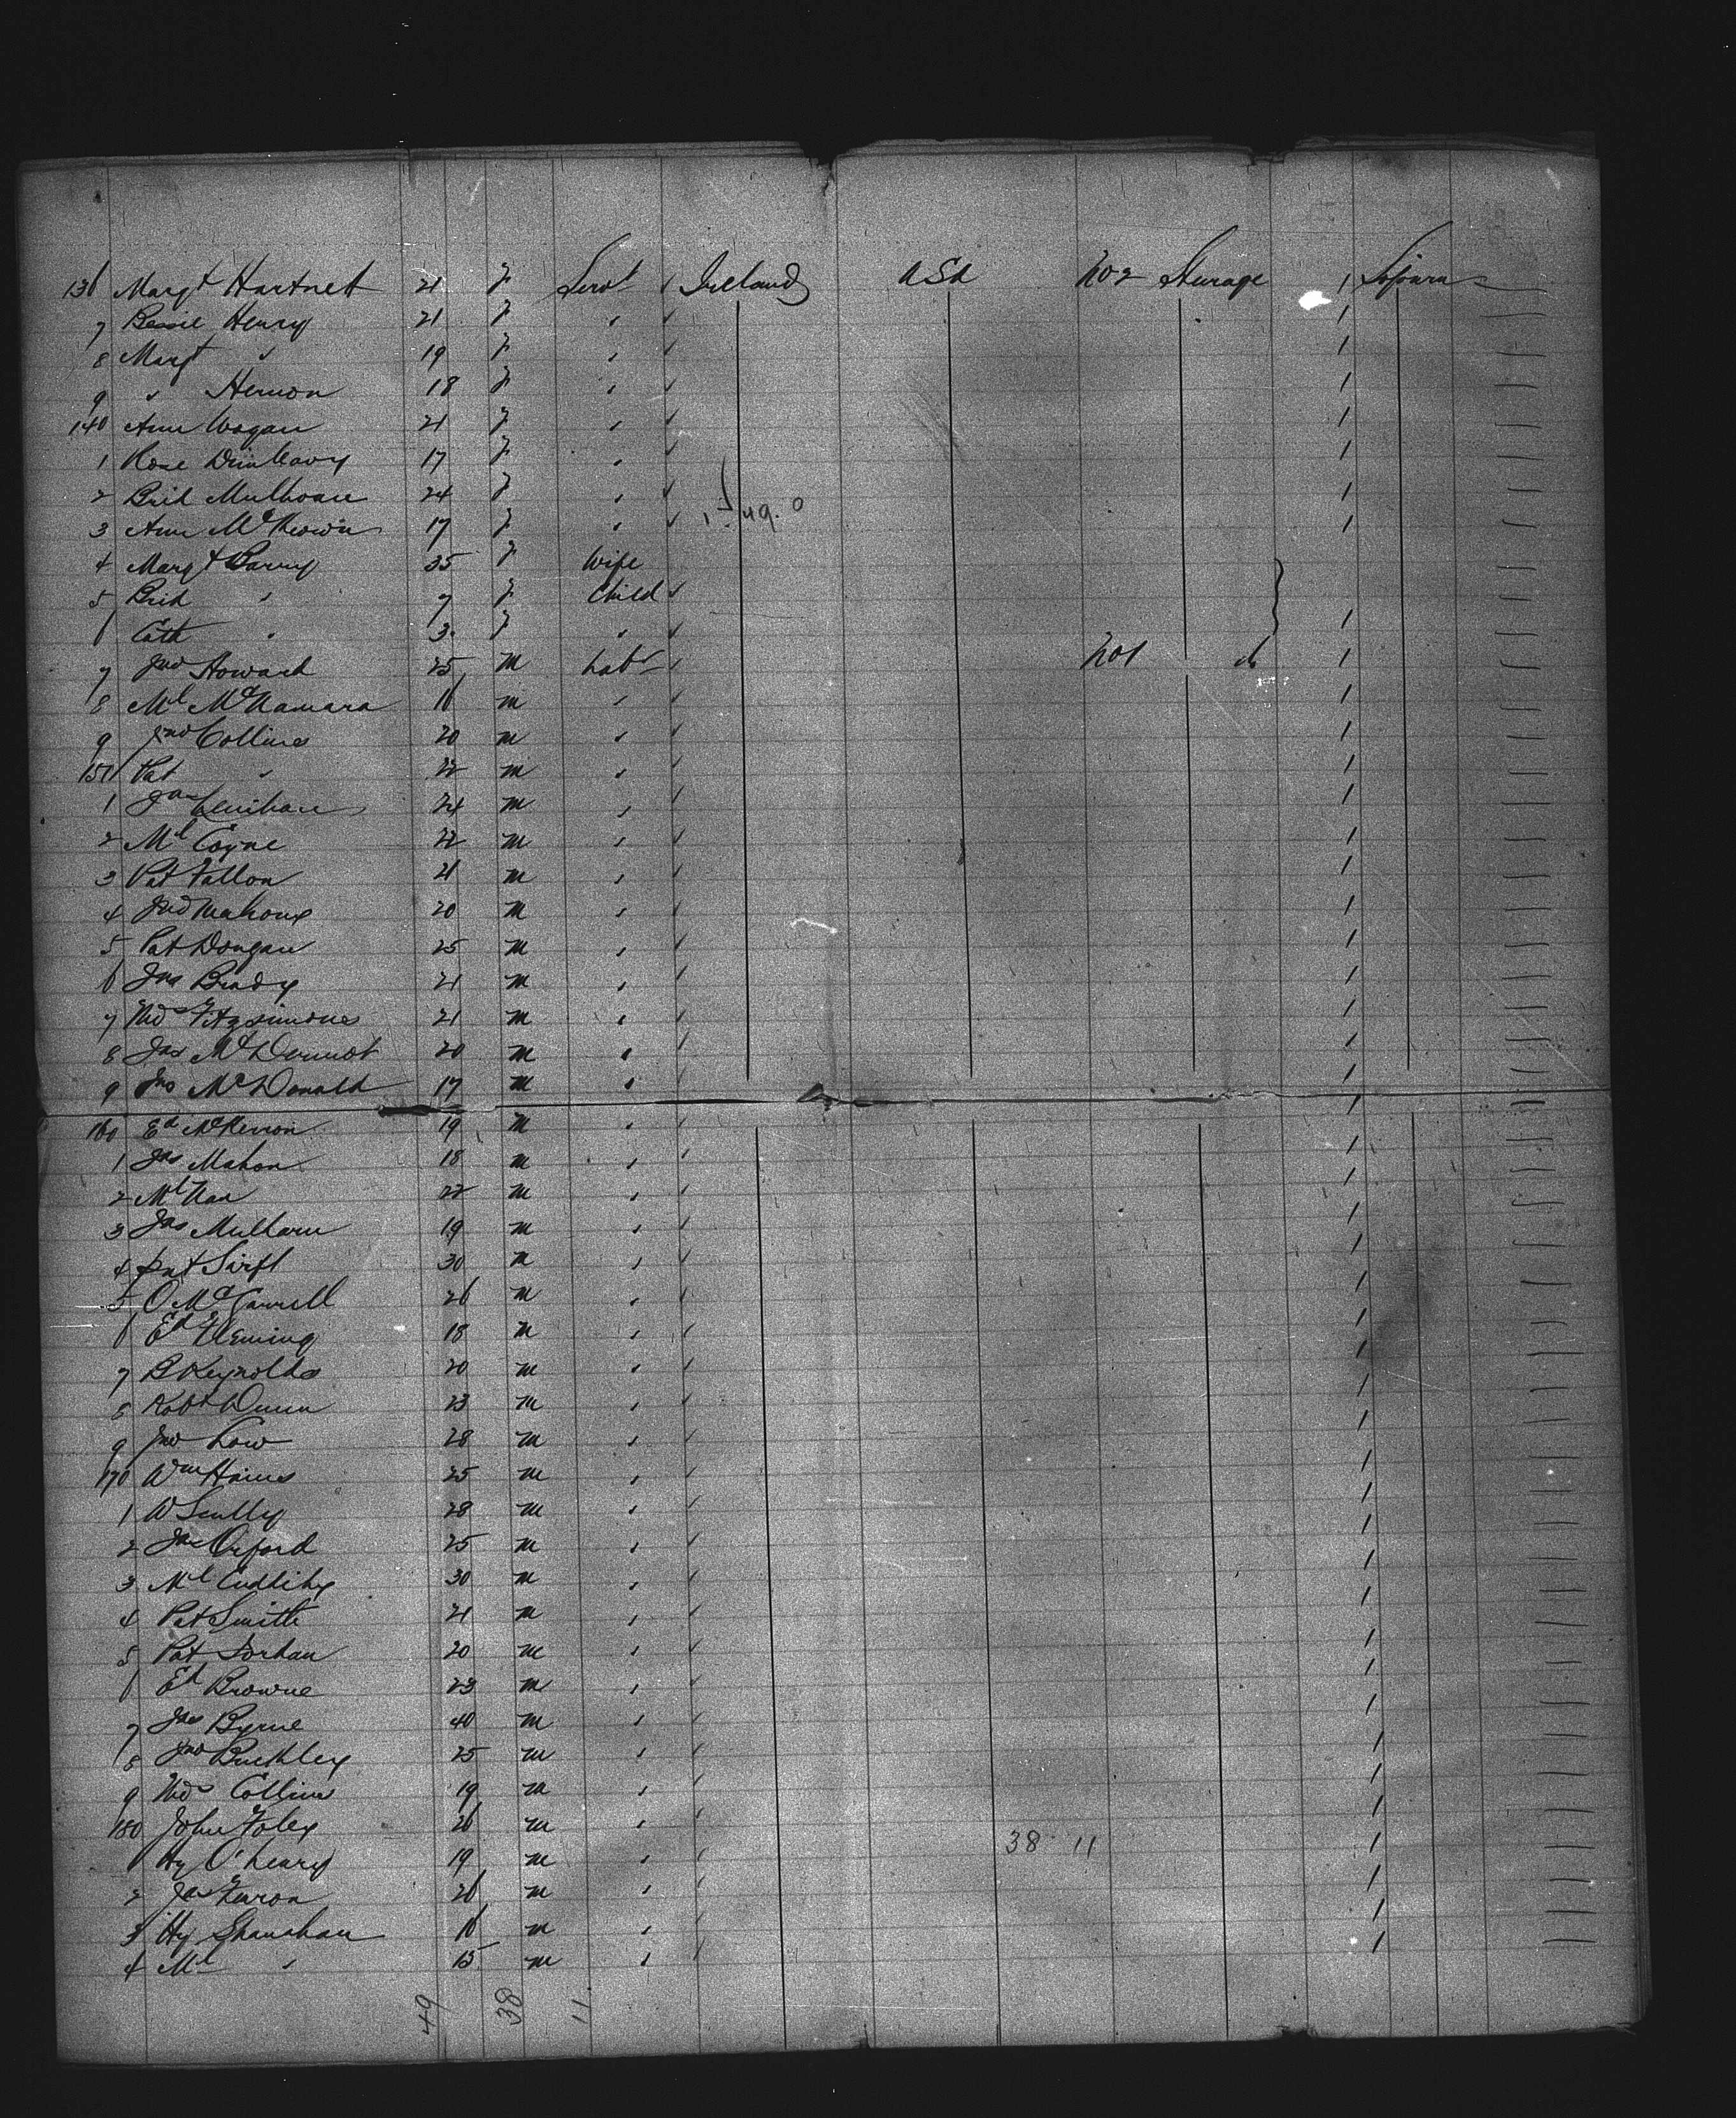 136 Margt Hartnett 21 f Servt ✓ Ireland USA No 2 Steerage 1 Sojourn
7 Bessie Henry 21 f " ✓ 1
8 Margt " 19 f " ✓ 1
9 " Hernon 18 f " ✓ 1
140 Ann Wogan 21 f " ✓ 1
1 Rose 17 f " ✓ 1
2 Brid 24 f " ✓ 1
3 Ann McKeown 17 f " ✓ 1
4 Margt Barry 35 f Wife
5 Brid " 7 f Child ✓
6 Cath " 3 f " ✓ 1
7 Jno Howard 25 m Labr ✓ No 1 do 1
8 Ml McNamara 16 m " ✓ 1
9 Jno Collins 20 m " ✓ 1
150 Pat " 22 m " ✓ 1
1 Jas Lenihan 24 m " ✓ 1
2 Ml Coyne 22 m " ✓ 1
3 Pat Fallon 21 m " ✓ 1
4 Jno Mahony 20 m " ✓ 1
5 Pat Dongan 25 m " ✓ 1
6 Jas Brady 21 m " ✓ 1
7 Thos Fitzsimons 21 m " ✓ 1
8 Jas McDermot 20 m " ✓ 1
9 Jno McDonald 17 m " ✓ 1
160 Ed McKerron 19 m " ✓ 1
1 Jas Mahon 18 m " ✓ 1
2 Ml 22 m " ✓ 1
3 Jas 19 m " ✓ 1
4 Pat Swift 30 m " ✓ 1
5 O McGarrell 26 m " ✓ 1
6 Ed Fleming 18 m " ✓ 1
7 B Reynolds 20 m " ✓ 1
8 Robt Dunn 23 m " ✓ 1
9 Jno Low 28 m " ✓ 1
170 Wm Haines 25 m " ✓ 1
1 W Scully 28 m " ✓ 1
2 Jas Orford 25 m " ✓ 1
3 Ml Cudlihy 30 m " ✓ 1
4 Pat Smith 21 m " ✓ 1
5 Pat 20 m " ✓ 1
6 Ed Browne 23 m " ✓ 1
7 Jas Byrne 40 m " ✓ 1
8 Jno Buckley 25 m " ✓ 1
9 Thos Collins 19 m " ✓ 1
180 John Foley 26 m " ✓ 1
1 Hy O'Leary 19 m " ✓ 38 11 1
2 Jas 26 m " ✓ 1
3 Hy Shanahan 16 m " ✓ 1
4 Ml " 15 m " ✓ 1
49 38 11